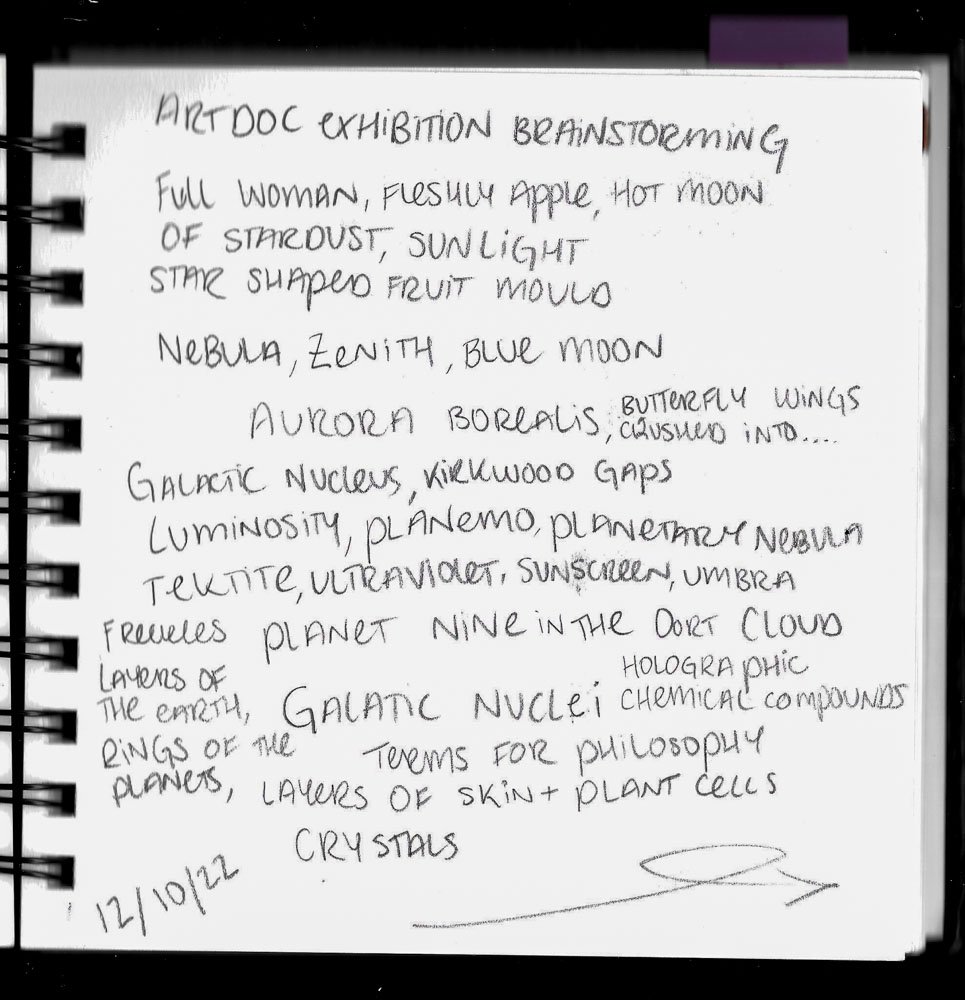 ARTDOC EXHIBITION BRAINSTORMING
FULL WOMAN, FLESHLY APPLE, HOT MOON
OF STARDUST, SUNLIGHT
STAR SHAPED FRUIT MOULD
NEBULA, ZENITH, BLUE MOON
AURORA BOREALIS, BUTTERFLY WINGS
CRUSHED INTO....
GALACTIC NUCLEUS, KIRKWOOD GAPS
LUMINOSITY, PLANEMO, PLANETARY NEBULA
TEKTITE, ULTRAVIOLET, SUNSCREEN, UMBRA
FRECKLES PLANET NINE IN THE OORT CLOUD
LAYERS OF
THE EARTH,
RINGS OF THE
PLANETS,
GALATIC NUCLEI
HOLOGRAPHIC
CHEMICAL COMPOUNDS
TERMS FOR PHILOSOPHY
LAYERS OF SKIN + PLANT CELLS
CRYSTALS
12/10/22